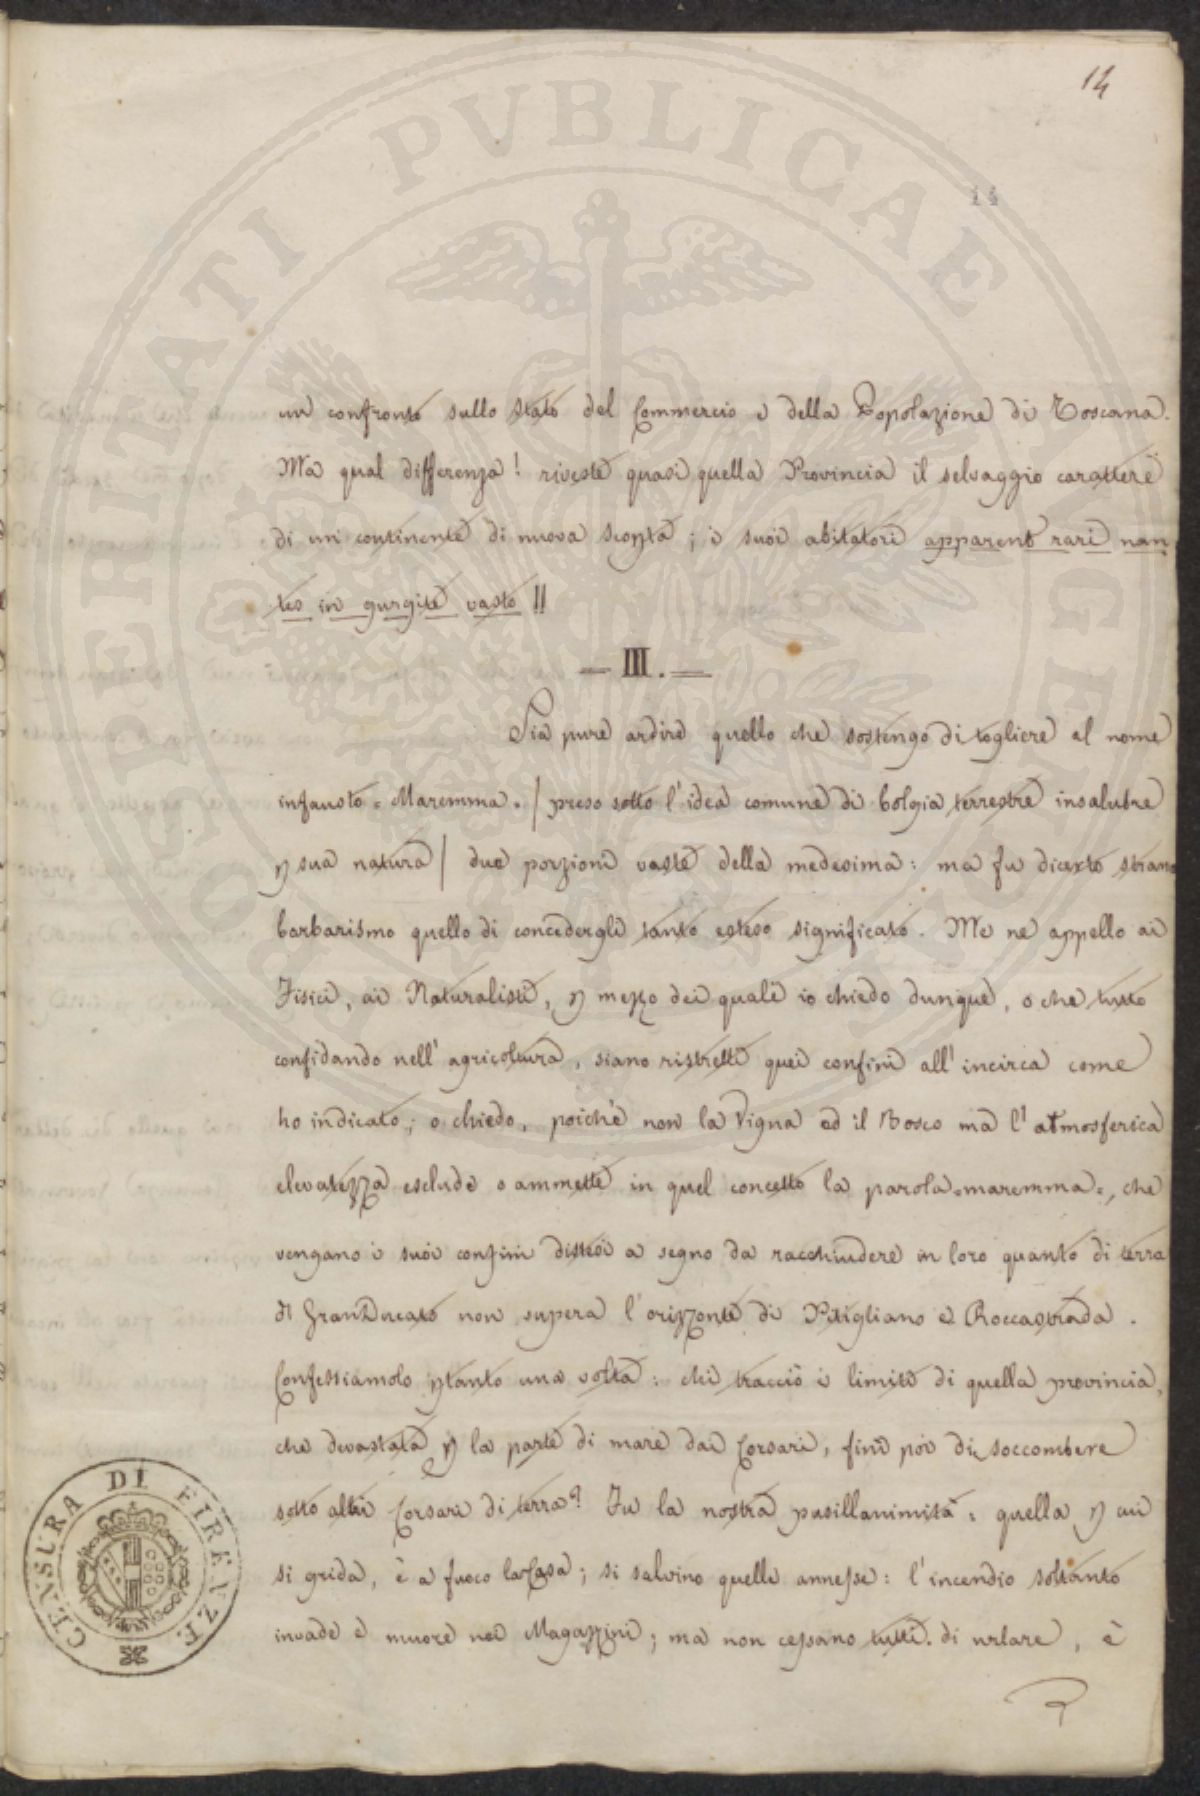 14
14
un confronto sullo stato del Commercio e della Popolazione di Toscana.
Ma qual differenza! riveste quasi quella Provincia il selvaggio carattere
di un continente di nuova scoperta; i suoi abitatori apparent rari nan
tes in gurgite vasto !!
= III. =
Sia pure ardire quello che sostengo di togliere al nome
infausto = Maremma = / preso sotto l'idea comune di bolgia terrestre insalubre
p sua natura / due porzioni vaste della medesima: ma fu di certo strano
barbarismo quello di concedergli tanto esteso significato. Me ne appello ai
Fisici, ai Naturalisti, p mezzo dei quali io chiedo dunque, o che tutto
confidando nell'agricoltura, siano ristretti quei confini all'incirca come
ho indicato; o chiedo, poichè non la Vigna ed il Bosco ma l'atmosferica
elevatezza esclude o ammette in quel concetto la parola =maremma=, che
vengano i suoi confini distesi a segno da racchiudere in loro quanto di terra
di GranDucato non supera l'orizzonte di Pitigliano e Roccastrada.
Confessiamolo ptanto una volta: chi tracciò i limiti di quella provincia,
che devastata p la parte di mare dai Corsari, finì poi di soccombere
sotto altri Corsari di terra? Fu la nostra pusillanimità: quella p cui
si grida, è a fuoco la Casa; si salvino quelle annesse: l'incendio soltanto
invade e muore nei Magazzini; ma non cessano tutti di urlare, è
CENSURA DI FIRENZE
PROSPERITATI PVBLICAE AVGENDAE